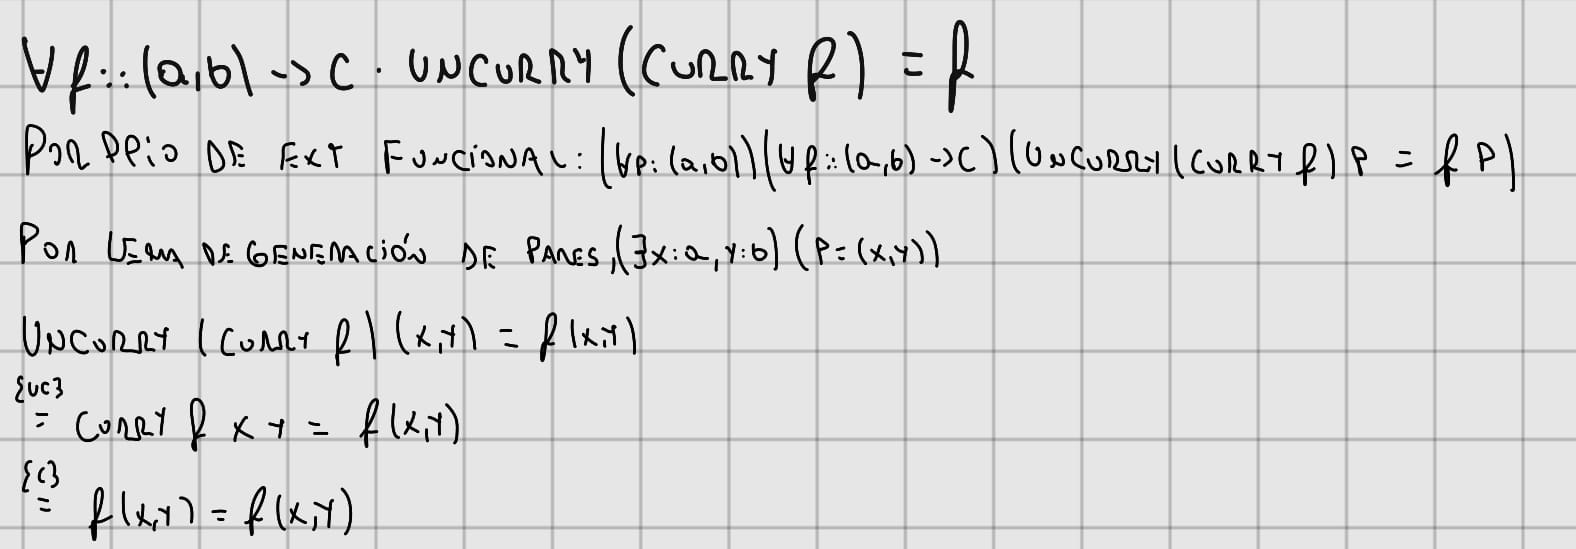 ∀f::(a,b)->C. UNCURRY (CURRY f) = f
POR PPIO DE EXT FUNCIONAL: (∀P:(a,b))(∀f::(a,b)->C)(UNCURRY(CURRY f) P = f P)
POR LEMA DE GENERACIÓN DE PARES, (∃x:a, y:b)(P=(x,y))
UNCURRY (CURRY f) (x,y) = f(x,y)
{UC}
= CURRY f x y = f(x,y)
{C}
= f(x,y) = f(x,y)